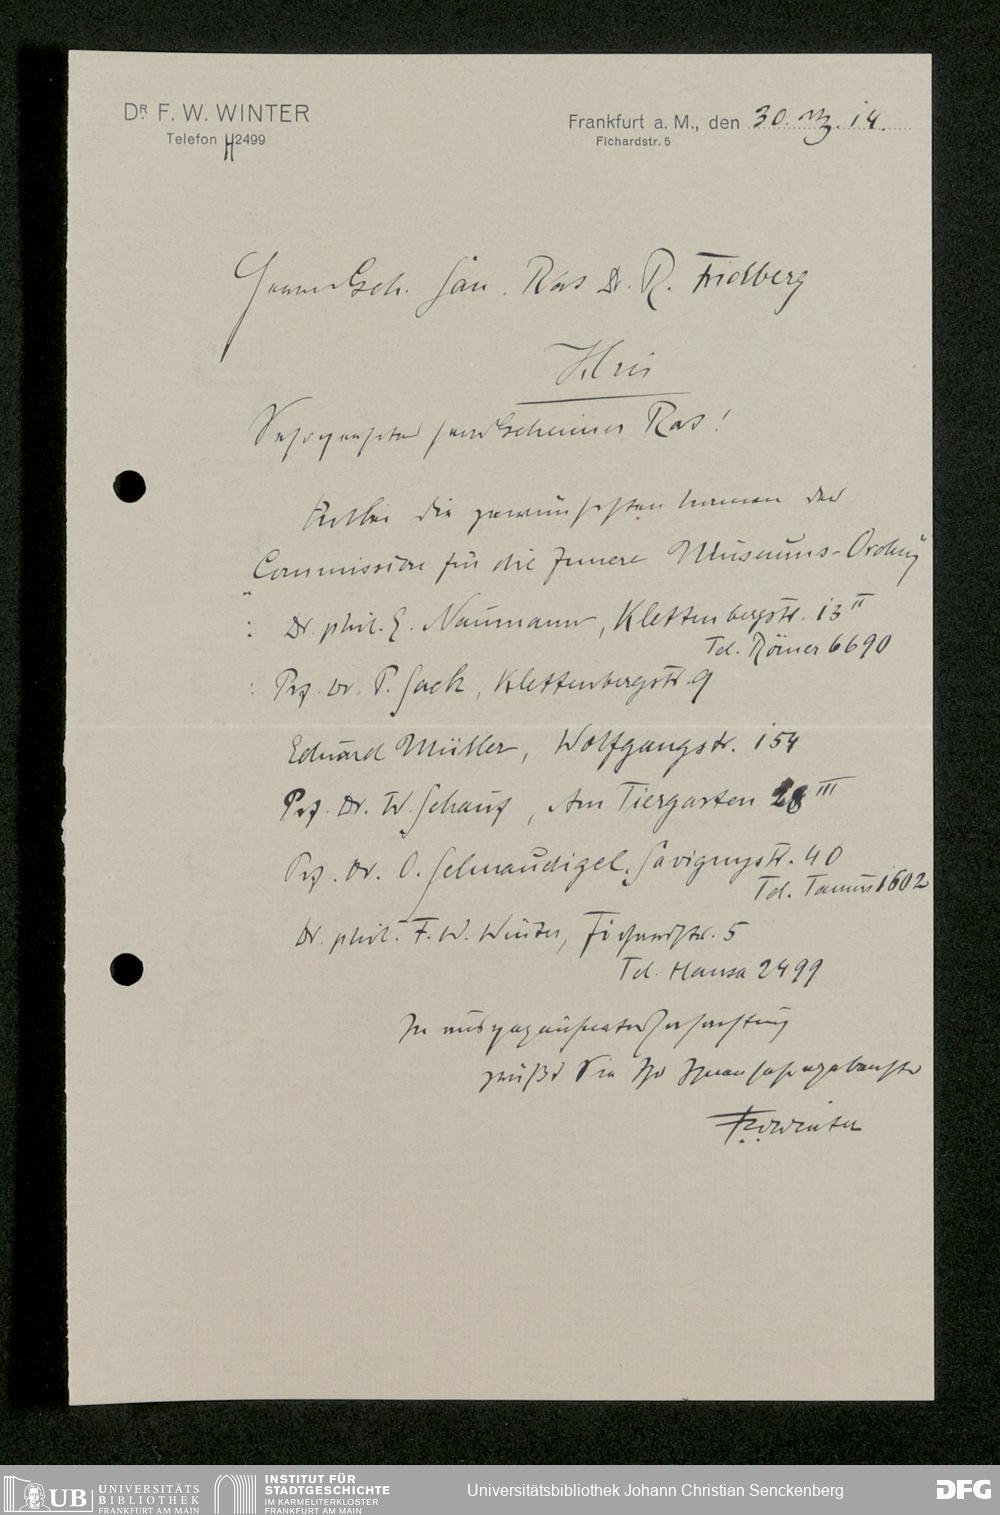 DR. F. W. WINTER
Telefon H 2499
Frankfurt a. M., den 30. Mz. 14.
Fichardstr. 5
Herrn Geh. San. Rat Dr. R. Fridberg
Hier
Sehrgeehrter Herr Geheimer Rat!
Anbei die gewünschten Namen der
"Commission für die Innere Museums-Ordng"
: Dr. phil. E. Naumann, Klettenbergstr. 13 II
Tel. Römer 6690
: Prof. Dr. P. Sack, Klettenbergstr. 9
Eduard Müller, Wolfgangstr. 154
Prof. Dr. W. Schauf, Am Tiergarten 28 III
Prof. Dr. O. Schnaudigel, Savignystr. 40
Tel. Taunus 1602
Dr. phil. F. W. Winter, Fichardstr. 5
Tel. Hansa 2499
In ausgezeichneter Hochachtung
grüßt Sie Ihr Ihnen sehr ergebenster
F W Winter
UB UNIVERSITÄTS
BIBLIOTHEK
FRANKFURT AM MAIN
INSTITUT FÜR
STADTGESCHICHTE
IM KARMELITERKLOSTER
FRANKFURT AM MAIN
Universitätsbibliothek Johann Christian Senckenberg
DFG